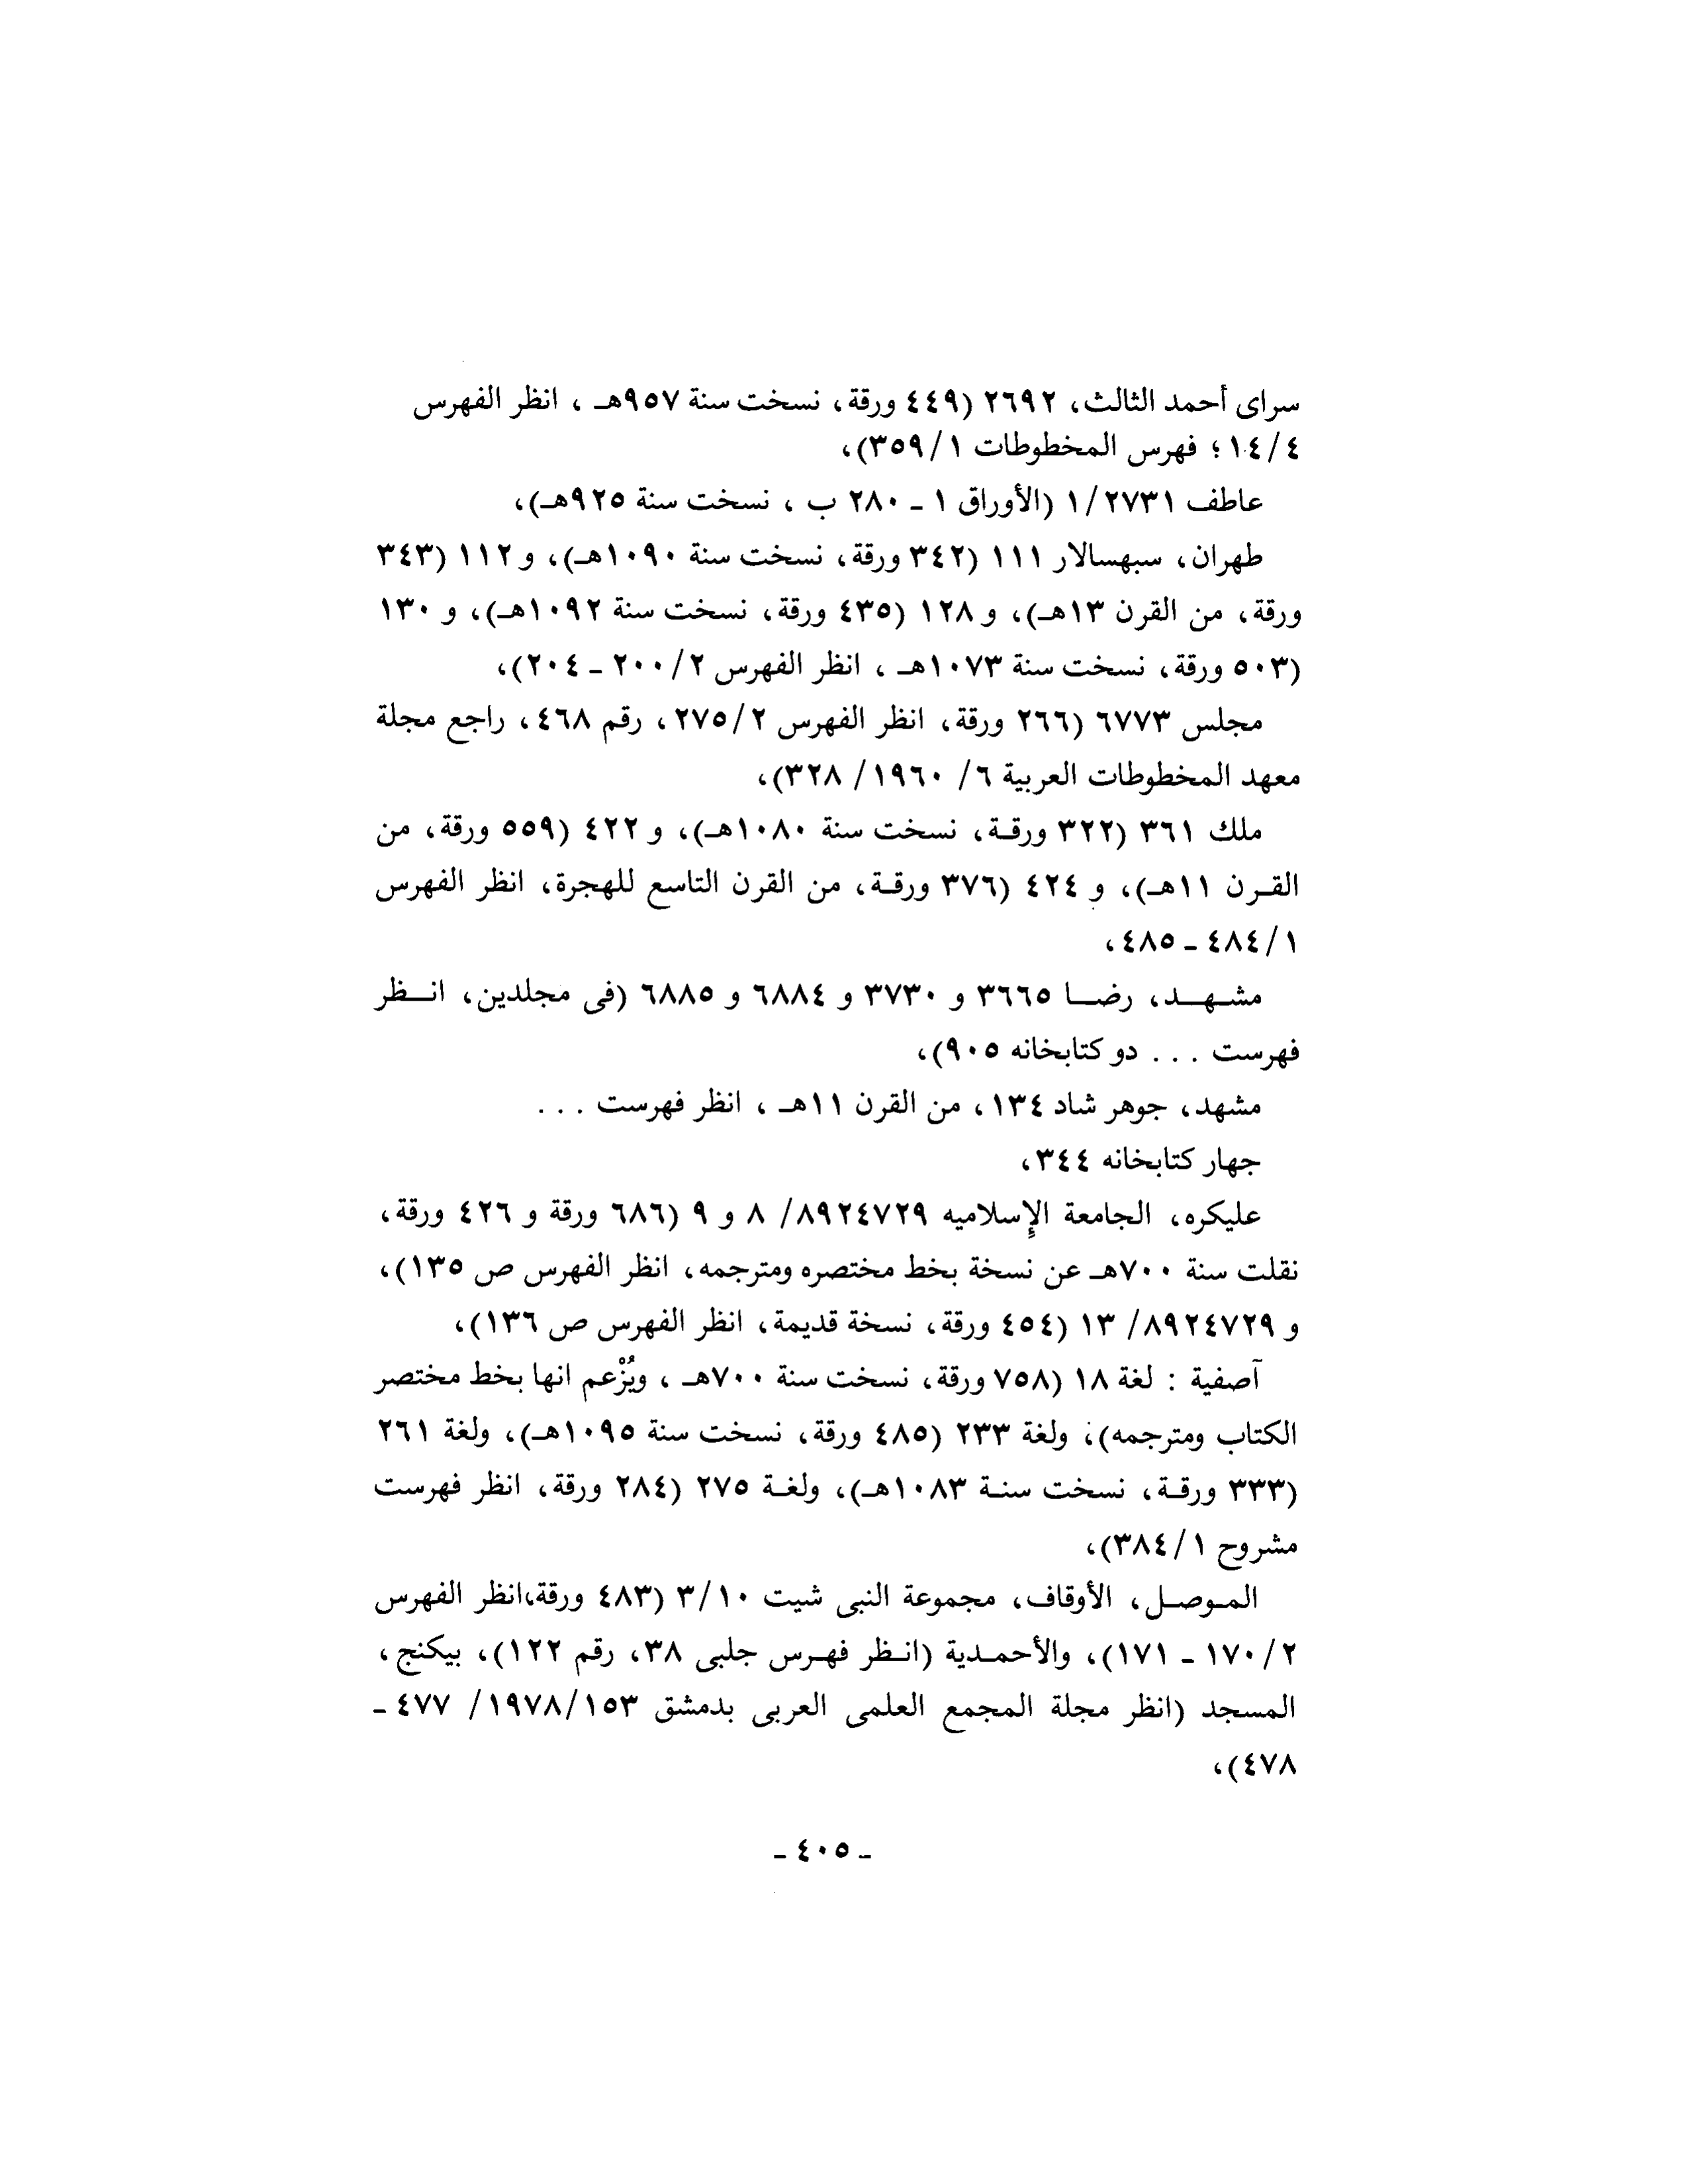 سراى أحمد الثالث، ٢٦٩٢ (٤٤٩ ورقة، نسخت سنة ٩٥٧هـ ، انظر الفهرس
٤/ ١٤ ؛ فهرس المخطوطات ١/ ٣٥٩)،
عاطف ٢٧٣١/ ١ (الأوراق ١ ـ ٢٨٠ ب ، نسخت سنة ٩٢٥هـ)،
طهران، سبهسالار ١١١ (٣٤٢ ورقة، نسخت سنة ١٠٩٠هـ)، و١١٢ (٣٤٣
ورقة، من القرن ١٣هـ)، و١٢٨ (٤٣٥ ورقة، نسخت سنة ١٠٩٢هـ)، و ١٣٠
(٥٠٣ ورقة، نسخت سنة ١٠٧٣هـ ، انظر الفهرس ٢/ ٢٠٠ ـ ٢٠٤)،
مجلس ٦٧٧٣ (٢٦٦ ورقة، انظر الفهرس ٢/ ٢٧٥، رقم ٤٦٨، راجع مجلة
معهد المخطوطات العربية ٦/ ١٩٦٠/ ٣٢٨)،
ملك ٣٦١ (٣٢٢ ورقـة، نسخت سنة ١٠٨٠هـ)، و٤٢٢ (٥٥٩ ورقة، من
القـرن ١١هـ)، و ٤٢٤ (٣٧٦ ورقـة، من القرن التاسع للهجرة، انظر الفهرس
١/ ٤٨٤ ـ ٤٨٥،
مشـهـد، رضـا ٣٦٦٥ و ٣٧٣٠ و ٦٨٨٤ و ٦٨٨٥ (فى مجلدين، انـظر
فهرست . . . دو كتابخانه ٩٠٥)،
مشهد، جوهر شاد ١٣٤، من القرن ١١هـ ، انظر فهرست . . .
جهار كتابخانه ٣٤٤،
عليكره، الجامعة الإسلاميه ٨٩٢٤٧٢٩/ ٨ و ٩ (٦٨٦ ورقة و ٤٢٦ ورقة،
نقلت سنة ٧٠٠هـ عن نسخة بخط مختصره ومترجمه، انظر الفهرس ص ١٣٥)،
و ٨٩٢٤٧٢٩/ ١٣ (٤٥٤ ورقة، نسخة قديمة، انظر الفهرس ص ١٣٦)،
آصفية : لغة ١٨ (٧٥٨ ورقة، نسخت سنة ٧٠٠هـ ، ويُزْعم انها بخط مختصر
الكتاب ومترجمه)، ولغة ٢٣٣ (٤٨٥ ورقة، نسخت سنة ١٠٩٥هـ)، ولغة ٢٦١
(٣٣٣ ورقـة، نسخت سنـة ١٠٨٣هـ)، ولغـة ٢٧٥ (٢٨٤ ورقة، انظر فهرست
مشروح ١/ ٣٨٤)،
المـوصـل، الأوقاف، مجموعة النبى شيت ٣/١٠ (٤٨٣ ورقة،انظر الفهرس
٢/ ١٧٠ ـ ١٧١)، والأحمـدية (انـظر فهـرس جلبى ٣٨، رقم ١٢٢)، بيكنج،
المسجد (انظر مجلة المجمع العلمى العربى بدمشق ١٥٣/ ١٩٧٨/ ٤٧٧ ـ
٤٧٨)،
ـ ٤٠٥ ـ